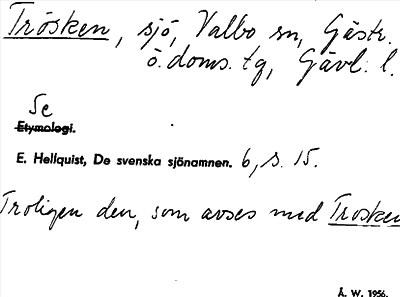 Trösken, sjö, Valbo sn, Gästr.
ö. doms. tg, Gävl. l.
Se
Etymologi.
E. Hellquist, De svenska sjönamnen. 6, s. 15.
Troligen den, som avses med Trosken
Å. W. 1956.